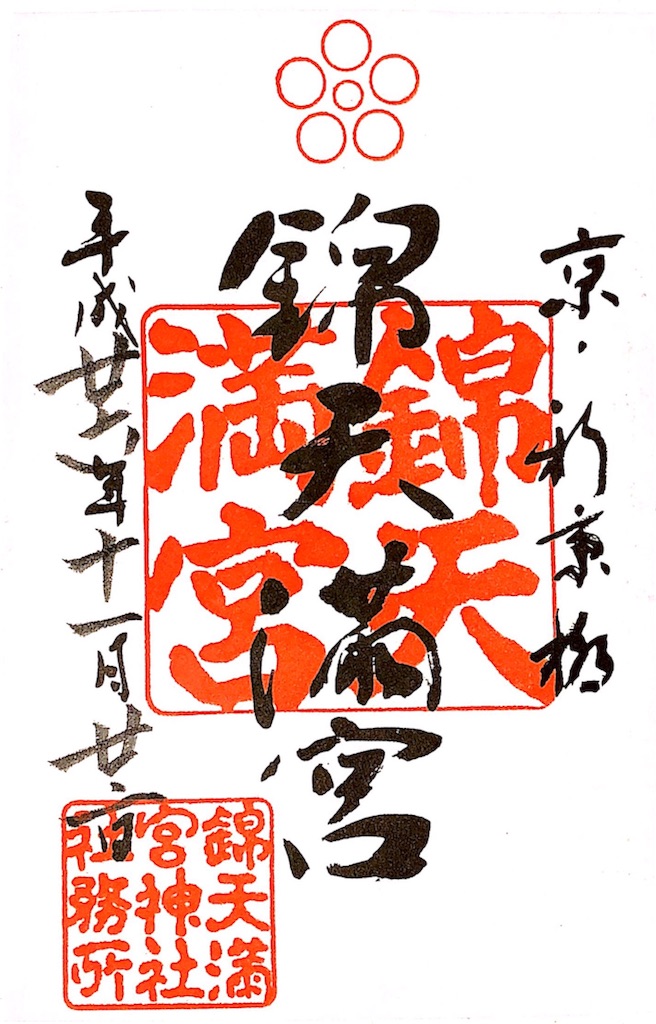 京・新京極
錦天満宮
錦天
満宮
平成廿年十一月廿日
錦天満
宮神社
社務所